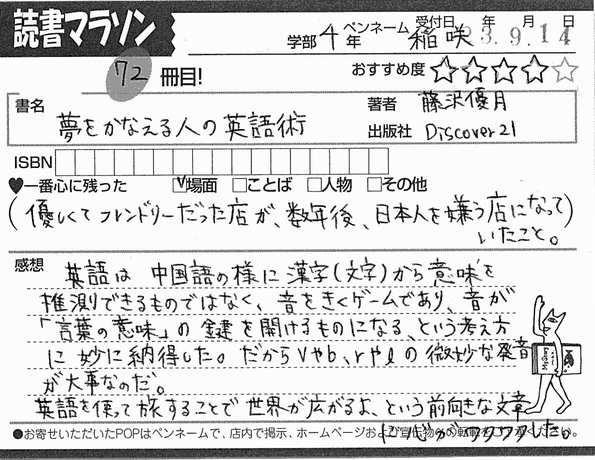 読書マラソン
学部 4年 ペンネーム 稲咲 受付日 年 月 日
23.9.14
72 冊目! おすすめ度 ☆☆☆☆☆
書名 夢をかなえる人の英語術 著者 藤沢優月
出版社 Discover21
ISBN
♥一番心に残った ☑場面 □ことば □人物 □その他
(優しくてフレンドリーだった店が、数年後、日本人を嫌う店になって
いたこと。)
感想 英語は中国語の様に漢字(文字)から意味を
推測できるものではなく、音をきくゲームであり、音が
「言葉の意味」の鍵を開けるものになる、という考え方
に妙に納得した。だからvやb、rやlの微妙な発音
が大事なのだ。
英語を使って旅することで世界が広がるよ、という前向きな文章
に心がワクワクした。
●お寄せいただいたPOPはペンネームで、店内で掲示、ホームページおよび宣伝物への転載を